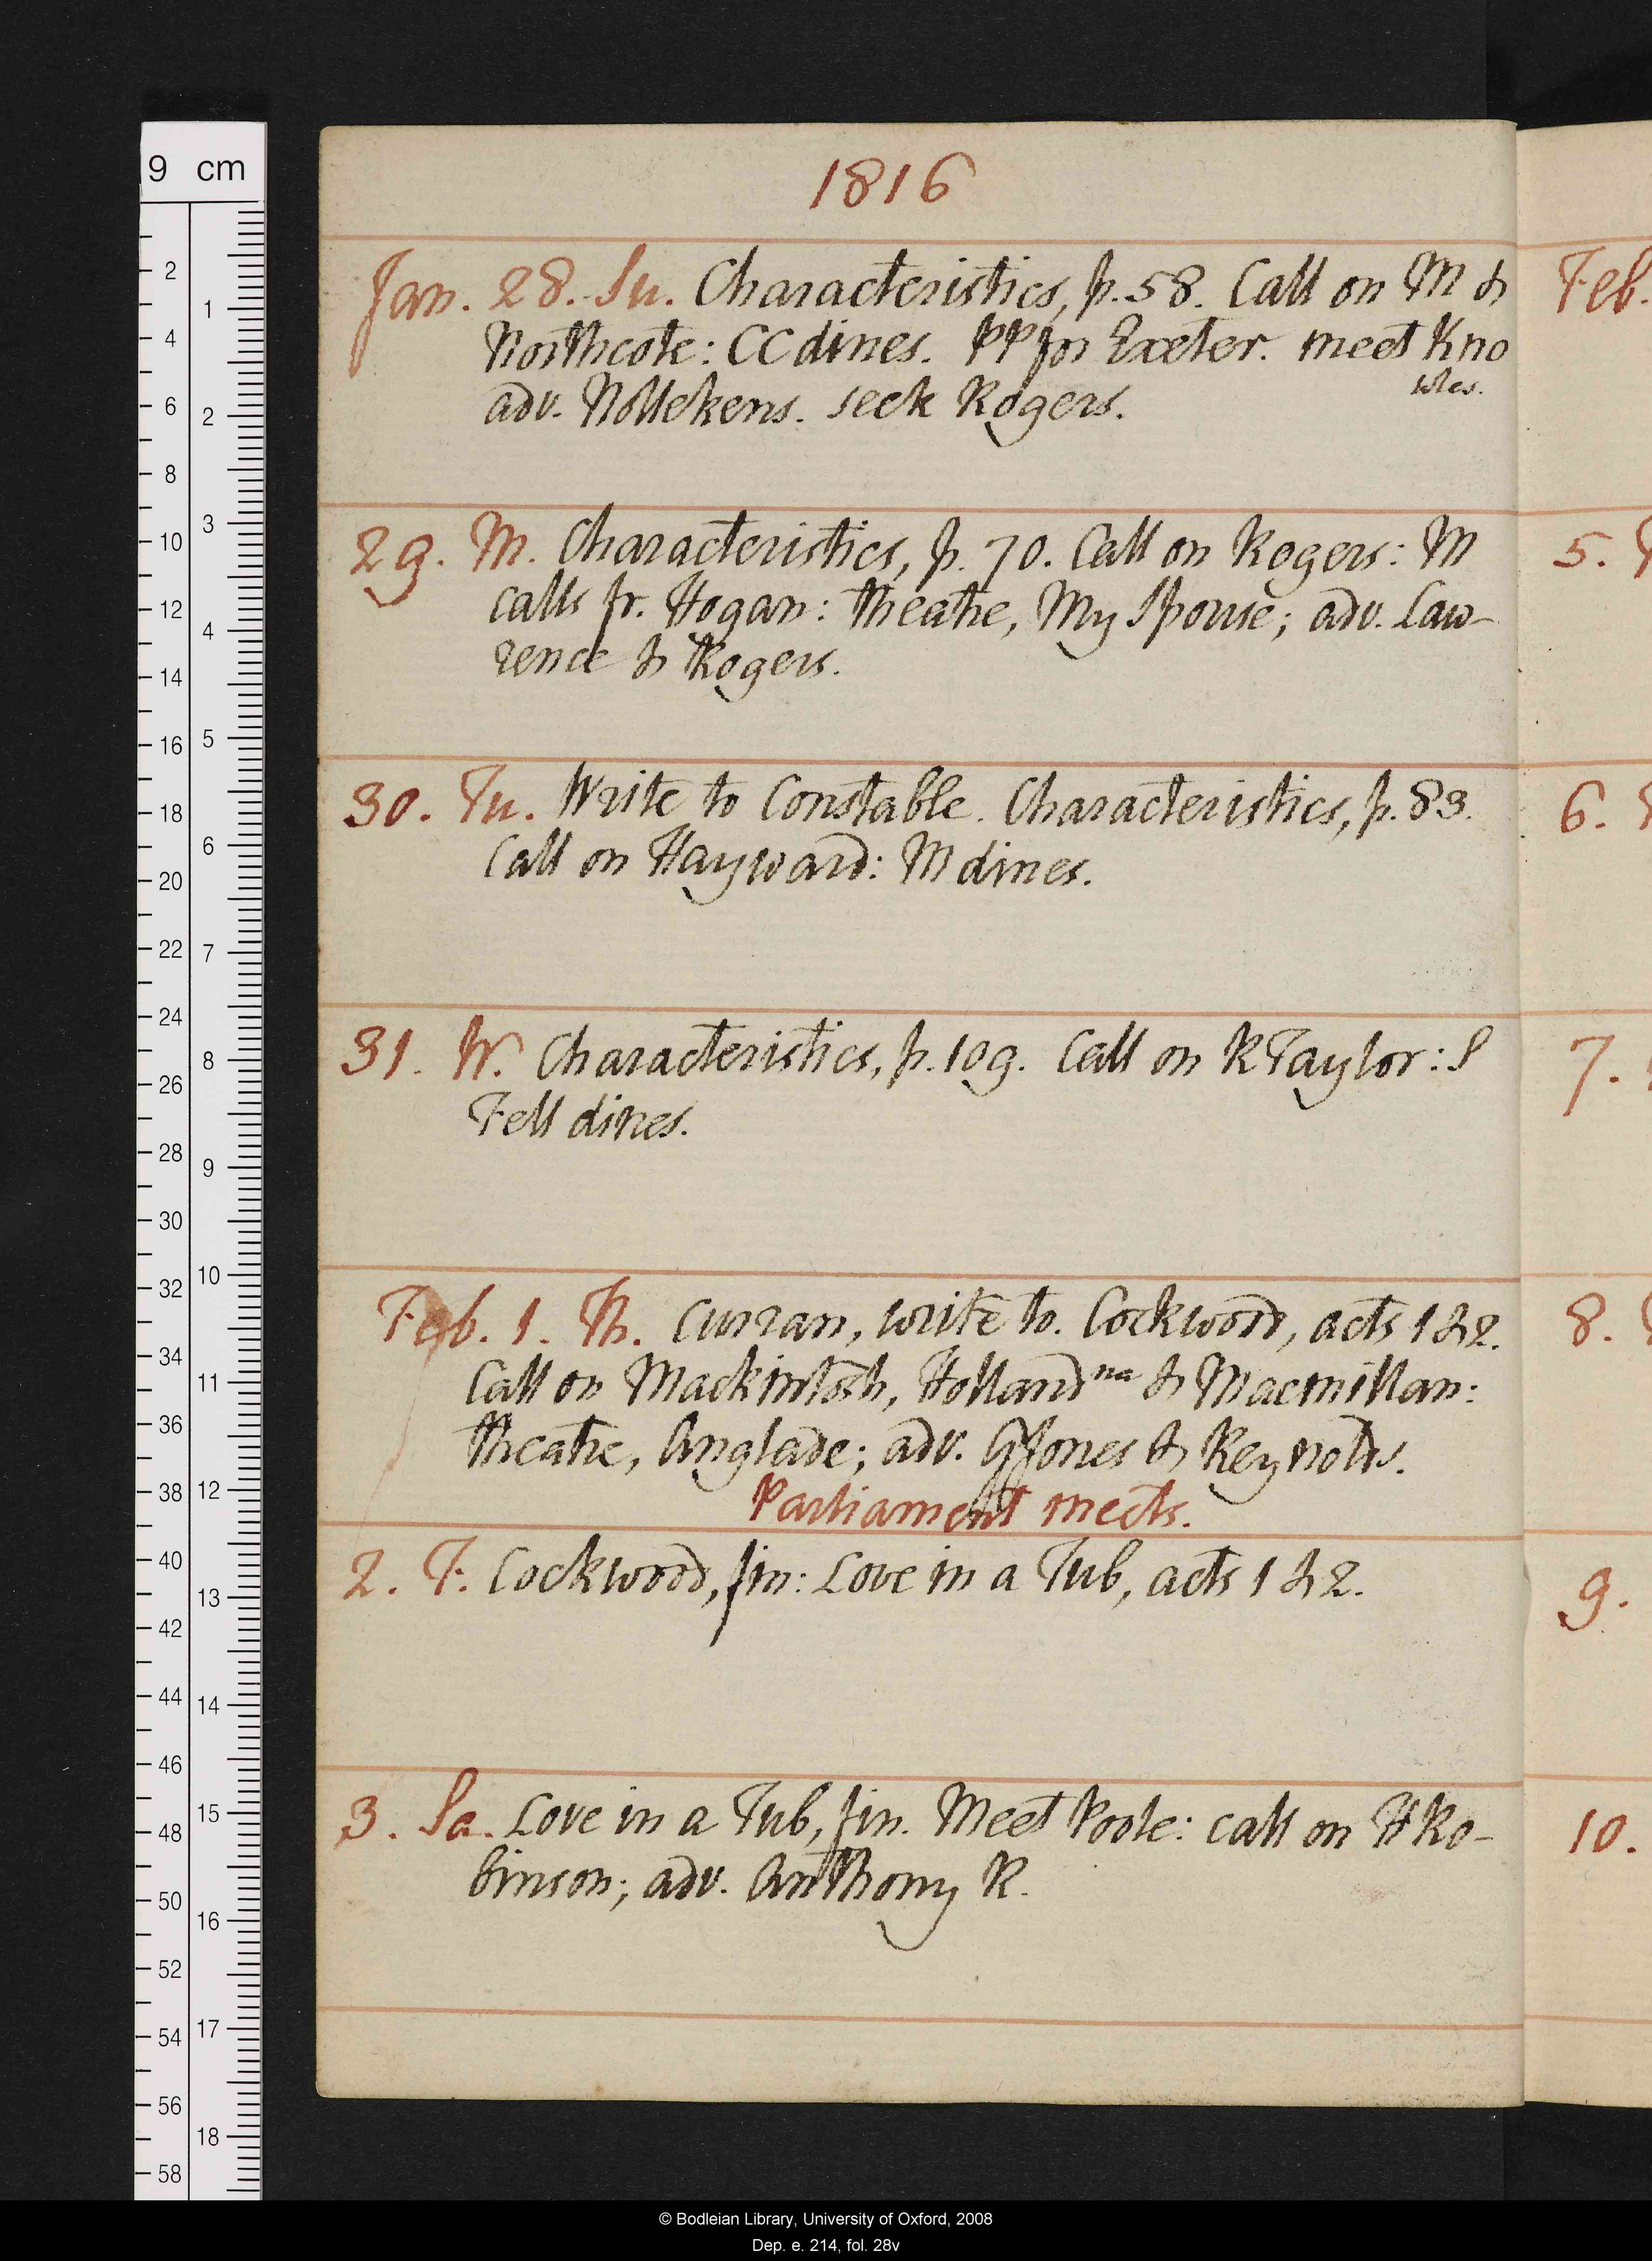 1816
Jan. 28. Su. Characteristics, p. 58. Call on M &
Northcote: CC dines. PP for Exeter. meet Kno
wles.
adv. Nollekens. seek Rogers.
29. M. Characteristics, p. 70. Call on Rogers: M
calls fr. Hogan: theatre, My Spouse; adv. Law-
rence & Rogers.
30. Tu. Write to Constable. Characteristics, p. 83.
Call on Hayward: M dines.
31. W. Characteristics, p. 109. Call on RTaylor: S
Fell dines.
Feb. 1. Th. Curran, write to. Cockwood, acts 1 & 2.
Call on Mackintosh, Holland na & Macmillan:
theatre, Anglade; adv. GJones & Reynolds.
Parliament meets.
2. F. Cockwood, fin: Love in a Tub, acts 1 & 2.
3. Sa. Love in a Tub, fin. Meet Poole: call on HRo-
binson; adv. Anthony R.
Feb.
5.
6.
7.
8.
9.
10.
9 cm
2 4 6 8 10 12 14 16 18 20 22 24 26 28 30 32 34 36 38 40 42 44 46 48 50 52 54 56 58
1 2 3 4 5 6 7 8 9 10 11 12 13 14 15 16 17 18
© Bodleian Library, University of Oxford, 2008
Dep. e. 214, fol. 28v